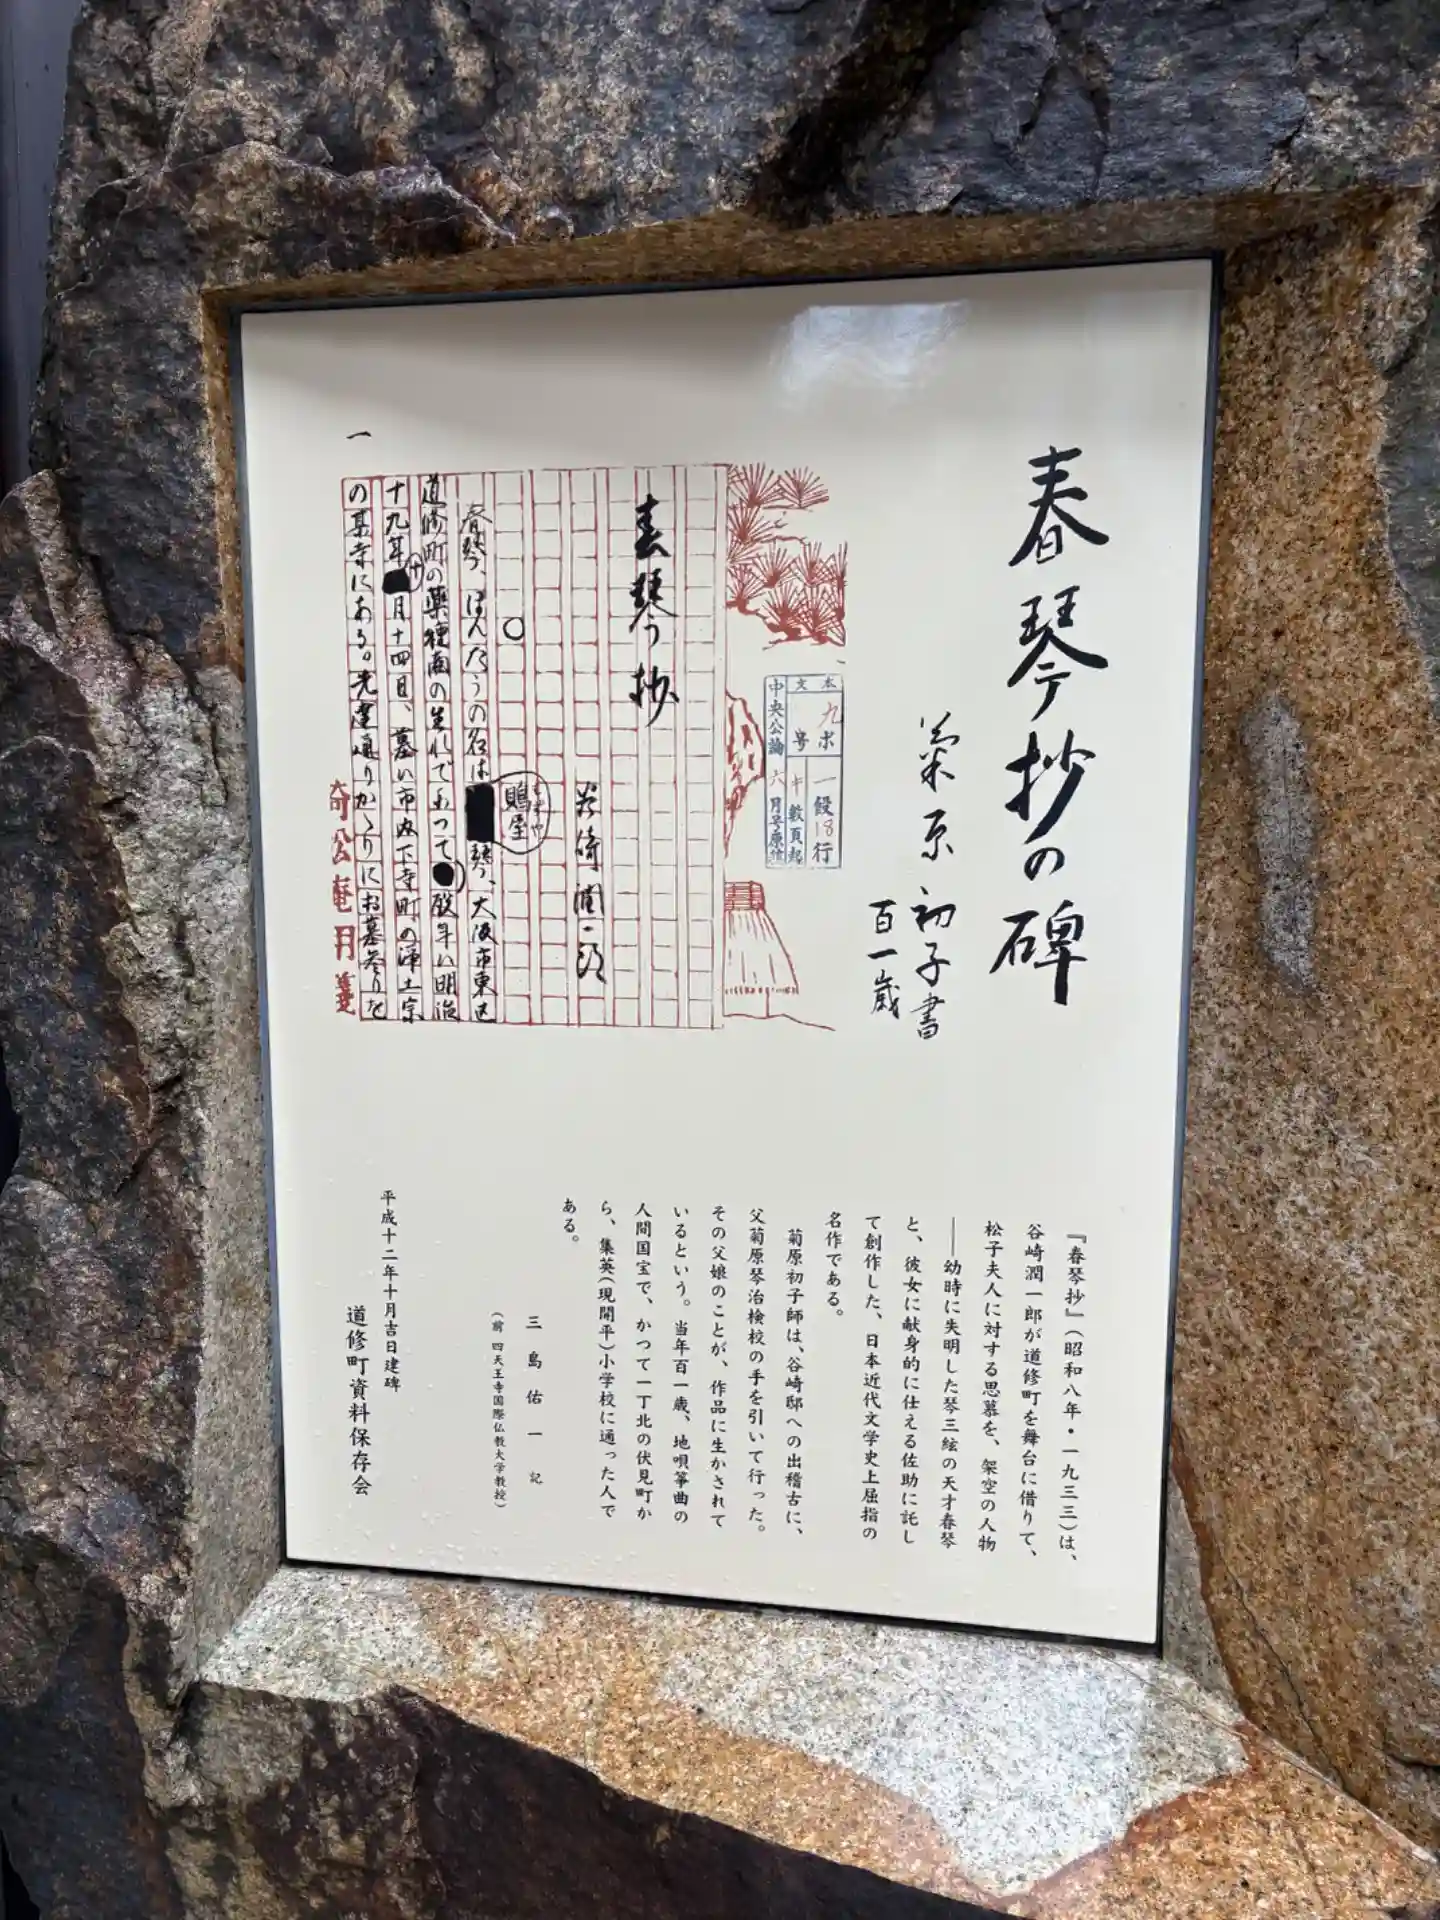 春琴抄の碑
菊原初子書
百一歳
本文 九ポ 一段18行
号 中数頁起
中央公論 六月号原稿
春琴抄
谷崎潤一郎
○
もずや
鵙屋
春琴、ほんたうの名は琴、大阪市東区
道修町の薬種商の生れでわつて歿年は明治
十九年十月十四日、墓は市内下寺町の浄土宗
の某寺にある。先達通りかゝりにお墓参りを
一
倚松庵用箋
『春琴抄』(昭和八年・一九三三)は、
谷崎潤一郎が道修町を舞台に借りて、
松子夫人に対する思慕を、架空の人物
――幼時に失明した琴三絃の天才春琴
と、彼女に献身的に仕える佐助に託し
て創作した、日本近代文学史上屈指の
名作である。
菊原初子師は、谷崎邸への出稽古に、
父菊原琴治検校の手を引いて行った。
その父娘のことが、作品に生かされて
いるという。当年百一歳、地唄箏曲の
人間国宝で、かつて一丁北の伏見町か
ら、集英(現開平)小学校に通った人で
ある。
三島佑一 記
(前 四天王寺国際仏教大学教授)
平成十二年十月吉日建碑
道修町資料保存会